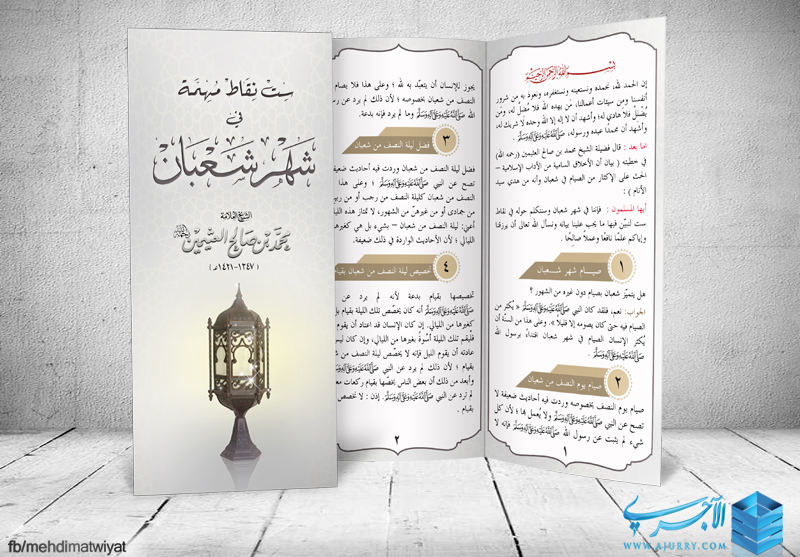 ست نقاط مهمة
في
شهر شعبان
الشيخ العلامة
محمد بن صالح العثيمين
(١٣٤٧-١٤٢١هـ)
بسم الله الرحمن الرحيم
إن الحمد لله، نحمده ونستعينه ونستغفره، ونعوذ به من شرور
أنفسنا ومن سيئات أعمالنا، مَن يهده الله فلا مُضلَّ له، ومَن
يُضْلِلْ فلا هادي له؛ وأشهد أن لا إله إلا الله وحده لا شريك له،
وأشهد أن محمدًا عبده ورسوله، ﷺ.
اما بعد : قال فضيلة الشيخ محمد بن صالح العثيمين (رحمه الله)
في خطبته ( بيان أن الأخلاق السامية من الآداب الإسلامية –
الحث على الإكثار من الصيام في شعبان وأنه من هدي سيد
الأنام ) :
أيها المسلمون : فإننا في شهر شعبان وسنتكلم حوله في نقاط
ست لنبيِّن فيها ما يجب علينا بيانه ونسأل الله تعالى أن يرزقنا
وإياكم علمًا نافعًا وعملاً صالحًا .
١ صيـــام شهر شـــعبان
هل يتميَّز شعبان بصيام دون غيره من الشهور ؟
الجواب: نعم فلقد كان النبي ﷺ « يُكثر من
الصيام فيه حتى كان يصومه إلا قليلاً »، وعلى هذا من السنَّة أن
يُكثر الإنسان الصيام في شهر شعبان اقتداءً برسول الله
ﷺ.
٢ صيام يوم النصف من شعبان
صيام يوم النصف بخصوصه وردت فيه أحاديث ضعيفة لا
تصح عن النبي ﷺ ولا يُعمل بها ؛ لأن كل
شيء لم يثبت عن رسول الله ﷺ فإنه لا
١
يجوز للإنسان أن يتعبَّد به لله ؛ وعلى هذا فلا يصام
النصف من شعبان بخصوصه ؛ لأن ذلك لم يرد عن رسول
الله ﷺ وما لم يرد فإنه بدعة.
٣ فضل ليلة النصف من شعبان
فضل ليلة النصف من شعبان وردت فيه أحاديث ضعيفة
تصح عن النبي ﷺ ؛ وعلى هذا
النصف من شعبان كليلة النصف من رجب أو من ربيع
من جمادى أو من غيرهنّ من الشهور، لا تمتاز هذه الليلة
أعني: ليلة النصف من شعبان – بشيء بل هي كغيرها
الليالي ؛ لأن الأحاديث الواردة في ذلك ضعيفة.
٤ تخصيص ليلة النصف من شعبان بقيام
تخصيصها بقيام بدعة لأنه لم يرد عن
ﷺ أنه كان يخصّص تلك الليلة بقيام بل
كغيرها من الليالي. إن كان الإنسان قد اعتاد أن يقوم
فليقم تلك الليلة أسوةً بغيرها من الليالي، وإن كان ليس
عادته أن يقوم الليل فإنه لا يخصّص ليلة النصف من شعبان
بقيام ؛ لأن ذلك لم يرد عن النبي ﷺ
وأبعد من ذلك أن بعض الناس يخصّها بقيام ركعات معدودة
لم ترد عن النبي ﷺ. إذن : لا نخصّص
بقيام .
٢
fb/mehdimatwiyat
الآجري
WWW.AJURRY.COM